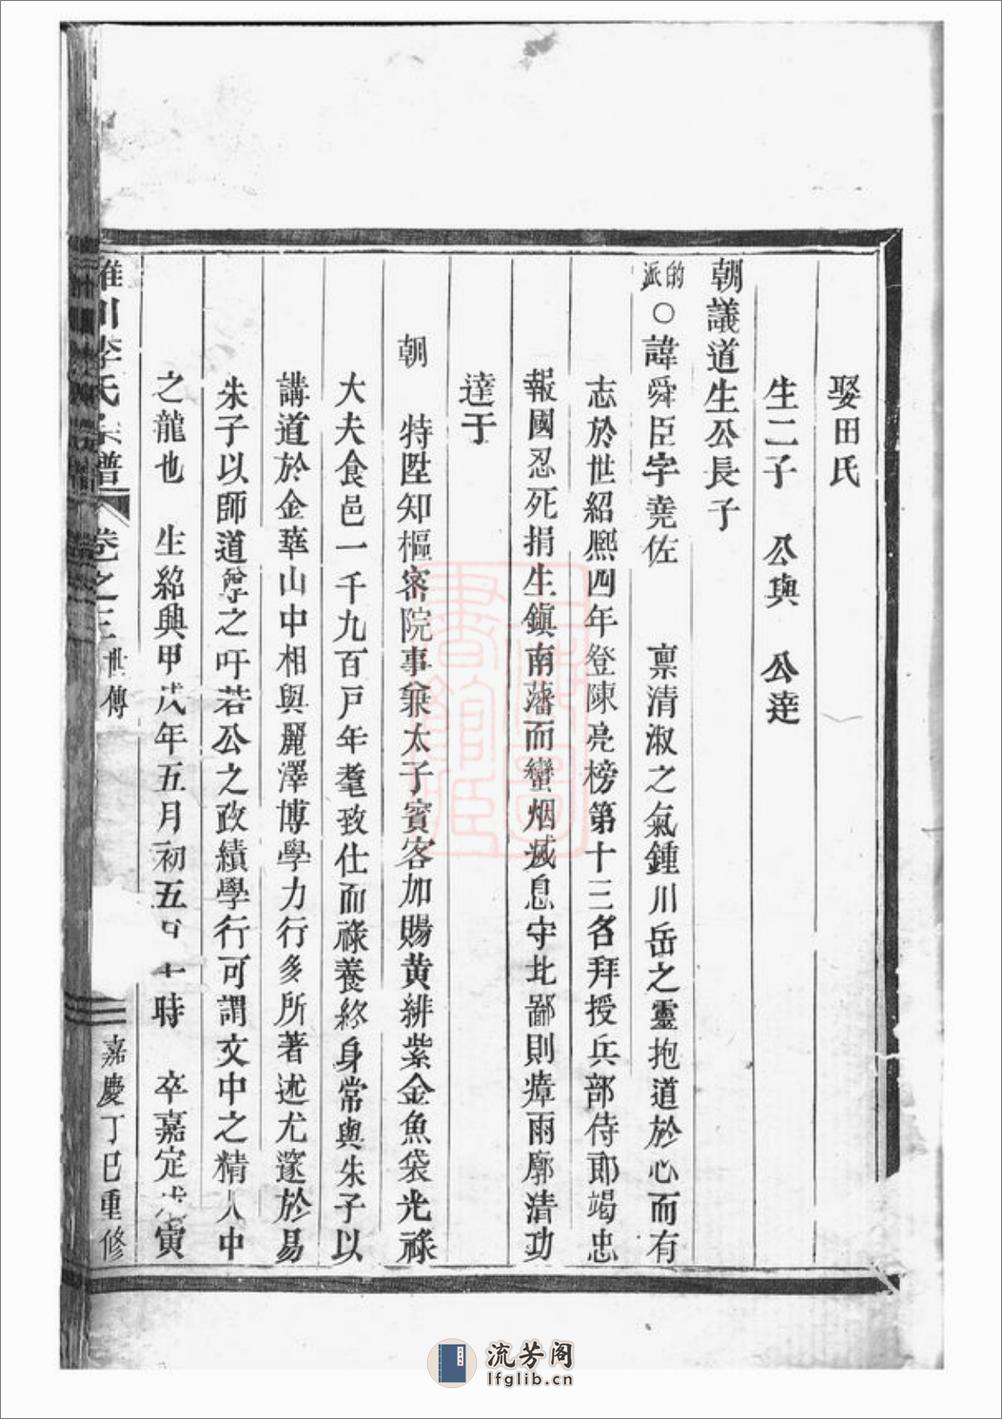 娶田氏
生二子　公與　公達
朝議道生公長子
的派○諱舜臣字堯佐　稟清淑之氣鍾川岳之靈抱道於心而有
志於世紹熙四年登陳亮榜第十三名拜授兵部侍郎竭忠
報國忍死捐生鎮南藩而蠻烟滅息守北鄙則瘴雨廓清功
達于
朝　特陞知樞密院事兼太子賓客加賜黃緋紫金魚袋光祿
大夫食邑一千九百戸年耄致仕而祿養終身常與朱子以
講道於金華山中相與麗澤博學力行多所著述尤邃於易
朱子以師道尊之吁若公之政績學行可謂文中之精人中
之龍也　生紹興甲戌年五月初五　時　卒嘉定戊寅
川李氏宗譜　卷之三　世傳　嘉慶丁巳重修
流芳阁
lfglib.cn